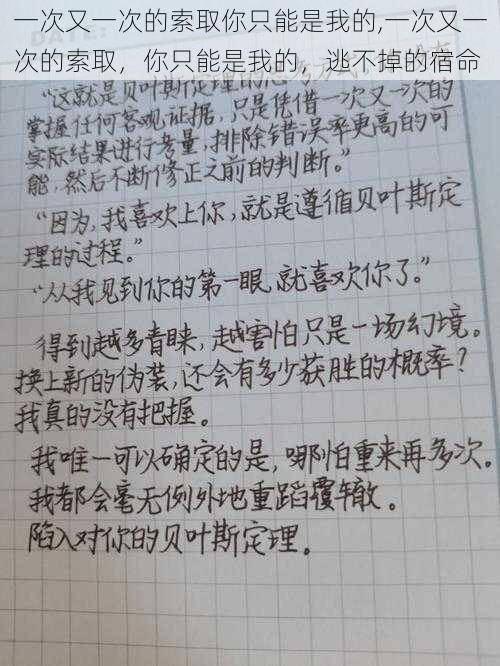 一次又一次的索取你只能是我的,一次又一
次的索取，你只能是我的，逃不掉的宿命
DATE:
“这就是贝叶斯定理的思考方式，没有
掌握任何客观证据，只是凭借一次又一次的
实际结果进行考量，排除错误率更高的可
能，然后不断修正之前的判断。”
“因为，我喜欢上你，就是遵循贝叶斯定
理的过程。”
“从我见到你的第一眼，就喜欢你了。”
得到越多青睐，越害怕只是一场幻境。
换上新的伪装，还会有多少获胜的概率？
我真的没有把握。
我唯一可以确定的是，哪怕重来再多次。
我都会毫无例外地重蹈覆辙。
陷入对你的贝叶斯定理。